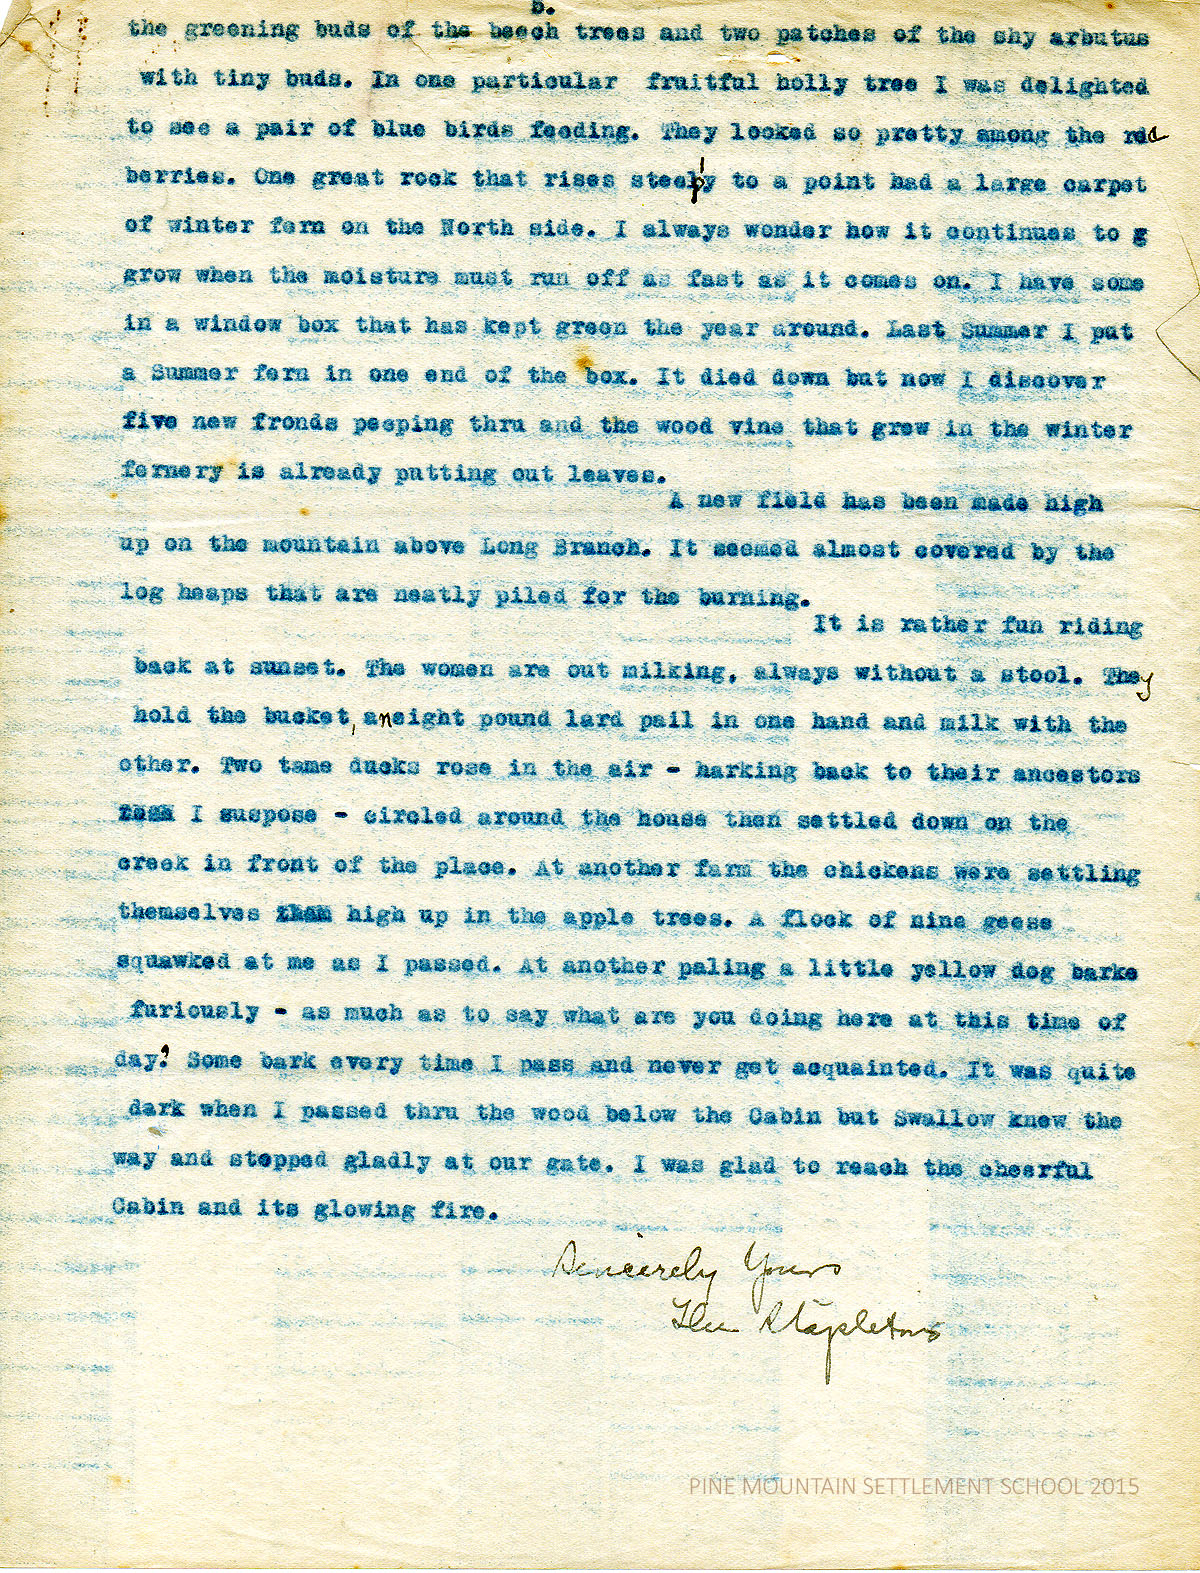 5.
the greening buds of the beech trees and two patches of the shy arbutus
with tiny buds. In one particular fruitful holly tree I was delighted
to see a pair of blue birds feeding. They looked so pretty among the red
berries. One great rock that rises steeply to a point had a large carpet
of winter fern on the North side. I always wonder how it continues to g
grow when the moisture must run off as fast as it comes on. I have some
in a window box that has kept green the year around. Last Summer I put
a Summer fern in one end of the box. It died down but now I discover
five new fronds peeping thru and the wood vine that grew in the winter
fernery is already putting out leaves.
A new field has been made high
up on the mountain above Long Branch. It seemed almost covered by the
log heaps that are neatly piled for the burning.
It is rather fun riding
back at sunset. The women are out milking, always without a stool. They
hold the bucket, an eight pound lard pail in one hand and milk with the
other. Two tame ducks rose in the air - harking back to their ancestors
I suspose - circled around the house then settled down on the
creek in front of the place. At another farm the chickens were settling
themselves high up in the apple trees. A flock of nine geese
squawked at me as I passed. At another paling a little yellow dog barks
furiously - as much as to say what are you doing here at this time of
day? Some bark every time I pass and never get acquainted. It was quite
dark when I passed thru the wood below the Cabin but Swallow knew the
way and stopped gladly at our gate. I was glad to reach the cheerful
Cabin and its glowing fire.
Sincerely Yours
Stapleton
PINE MOUNTAIN SETTLEMENT SCHOOL 2015